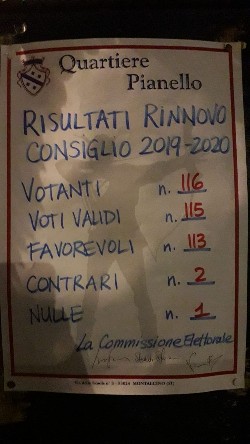 Quartiere
Pianello
RISULTATI RINNOVO
CONSIGLIO 2019-2020
VOTANTI n. 116
VOTI VALIDI n. 115
FAVOREVOLI n. 113
CONTRARI n. 2
NULLE n. 1
La Commissione Elettorale
MONTALCINO (SI)